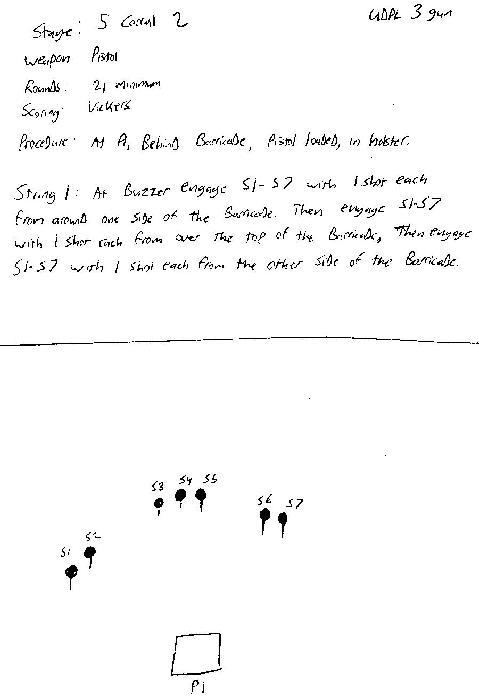 Stage: 5 Corral 2
UDPL 3 gun
Weapon Pistol
Rounds: 21 minimum
Scoring: Vickers
Procedure: At P1, Behind Barricade, Pistol loaded, in holster.
String 1: At Buzzer engage S1-S7 with 1 shot each
from around one side of the Barricade. Then engage S1-S7
with 1 shot each from over the top of the Barricade, Then engage
S1-S7 with 1 shot each from the other side of the Barricade.
S3 S4 S5
S6 S7
S1 S2
P1